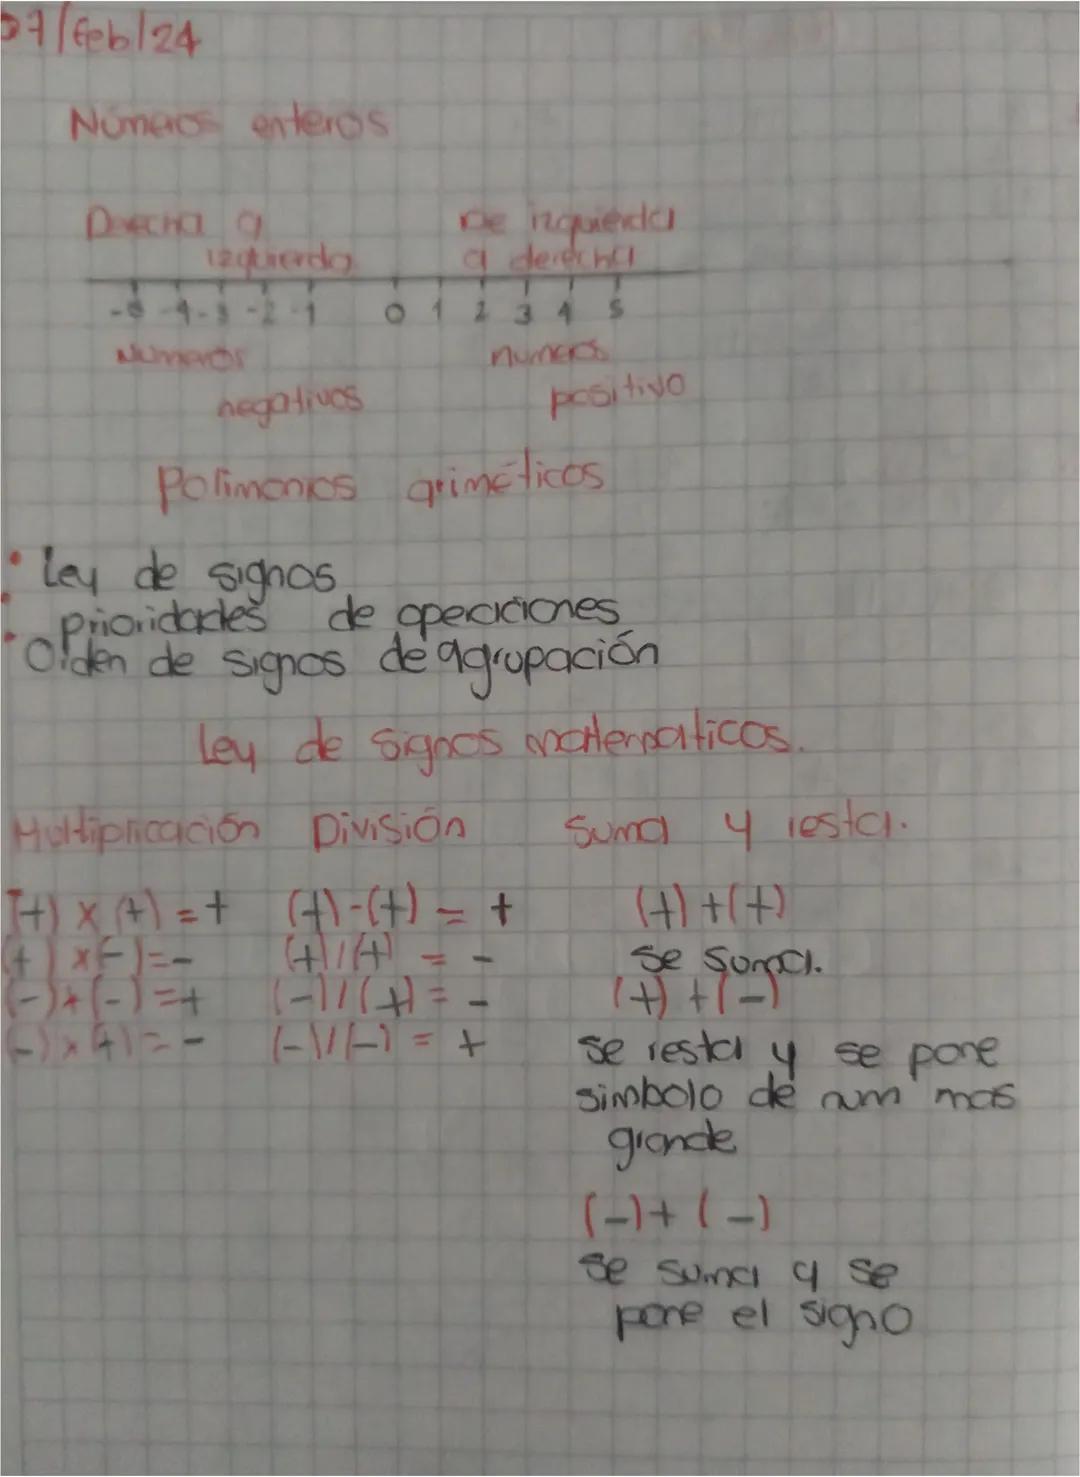 07/feb/24
Números enteros
Derecha a izquierda
De izquierda a derecha
-5 -4 -3 -2 -1 0 1 2 3 4 5
Numeros negativos
numeros positivo
Polimonios ariméticos
• Ley de signos
• prioridades de operaciones
• Orden de signos de agrupación
Ley de signos matematicos.
Multiplicación División Suma y resta.
(+) x (+) = + (+)-(+) = + (+) + (+)
(+) x (-) = - (+)/(+) = - se suma.
(-) + (-) = + (-)/(+) = - (+) + (-)
(-) x (+) = - (-)/(-) = + se resta y se pone
simbolo de num mas
grande
(-) + (-)
se suma y se
pone el signo